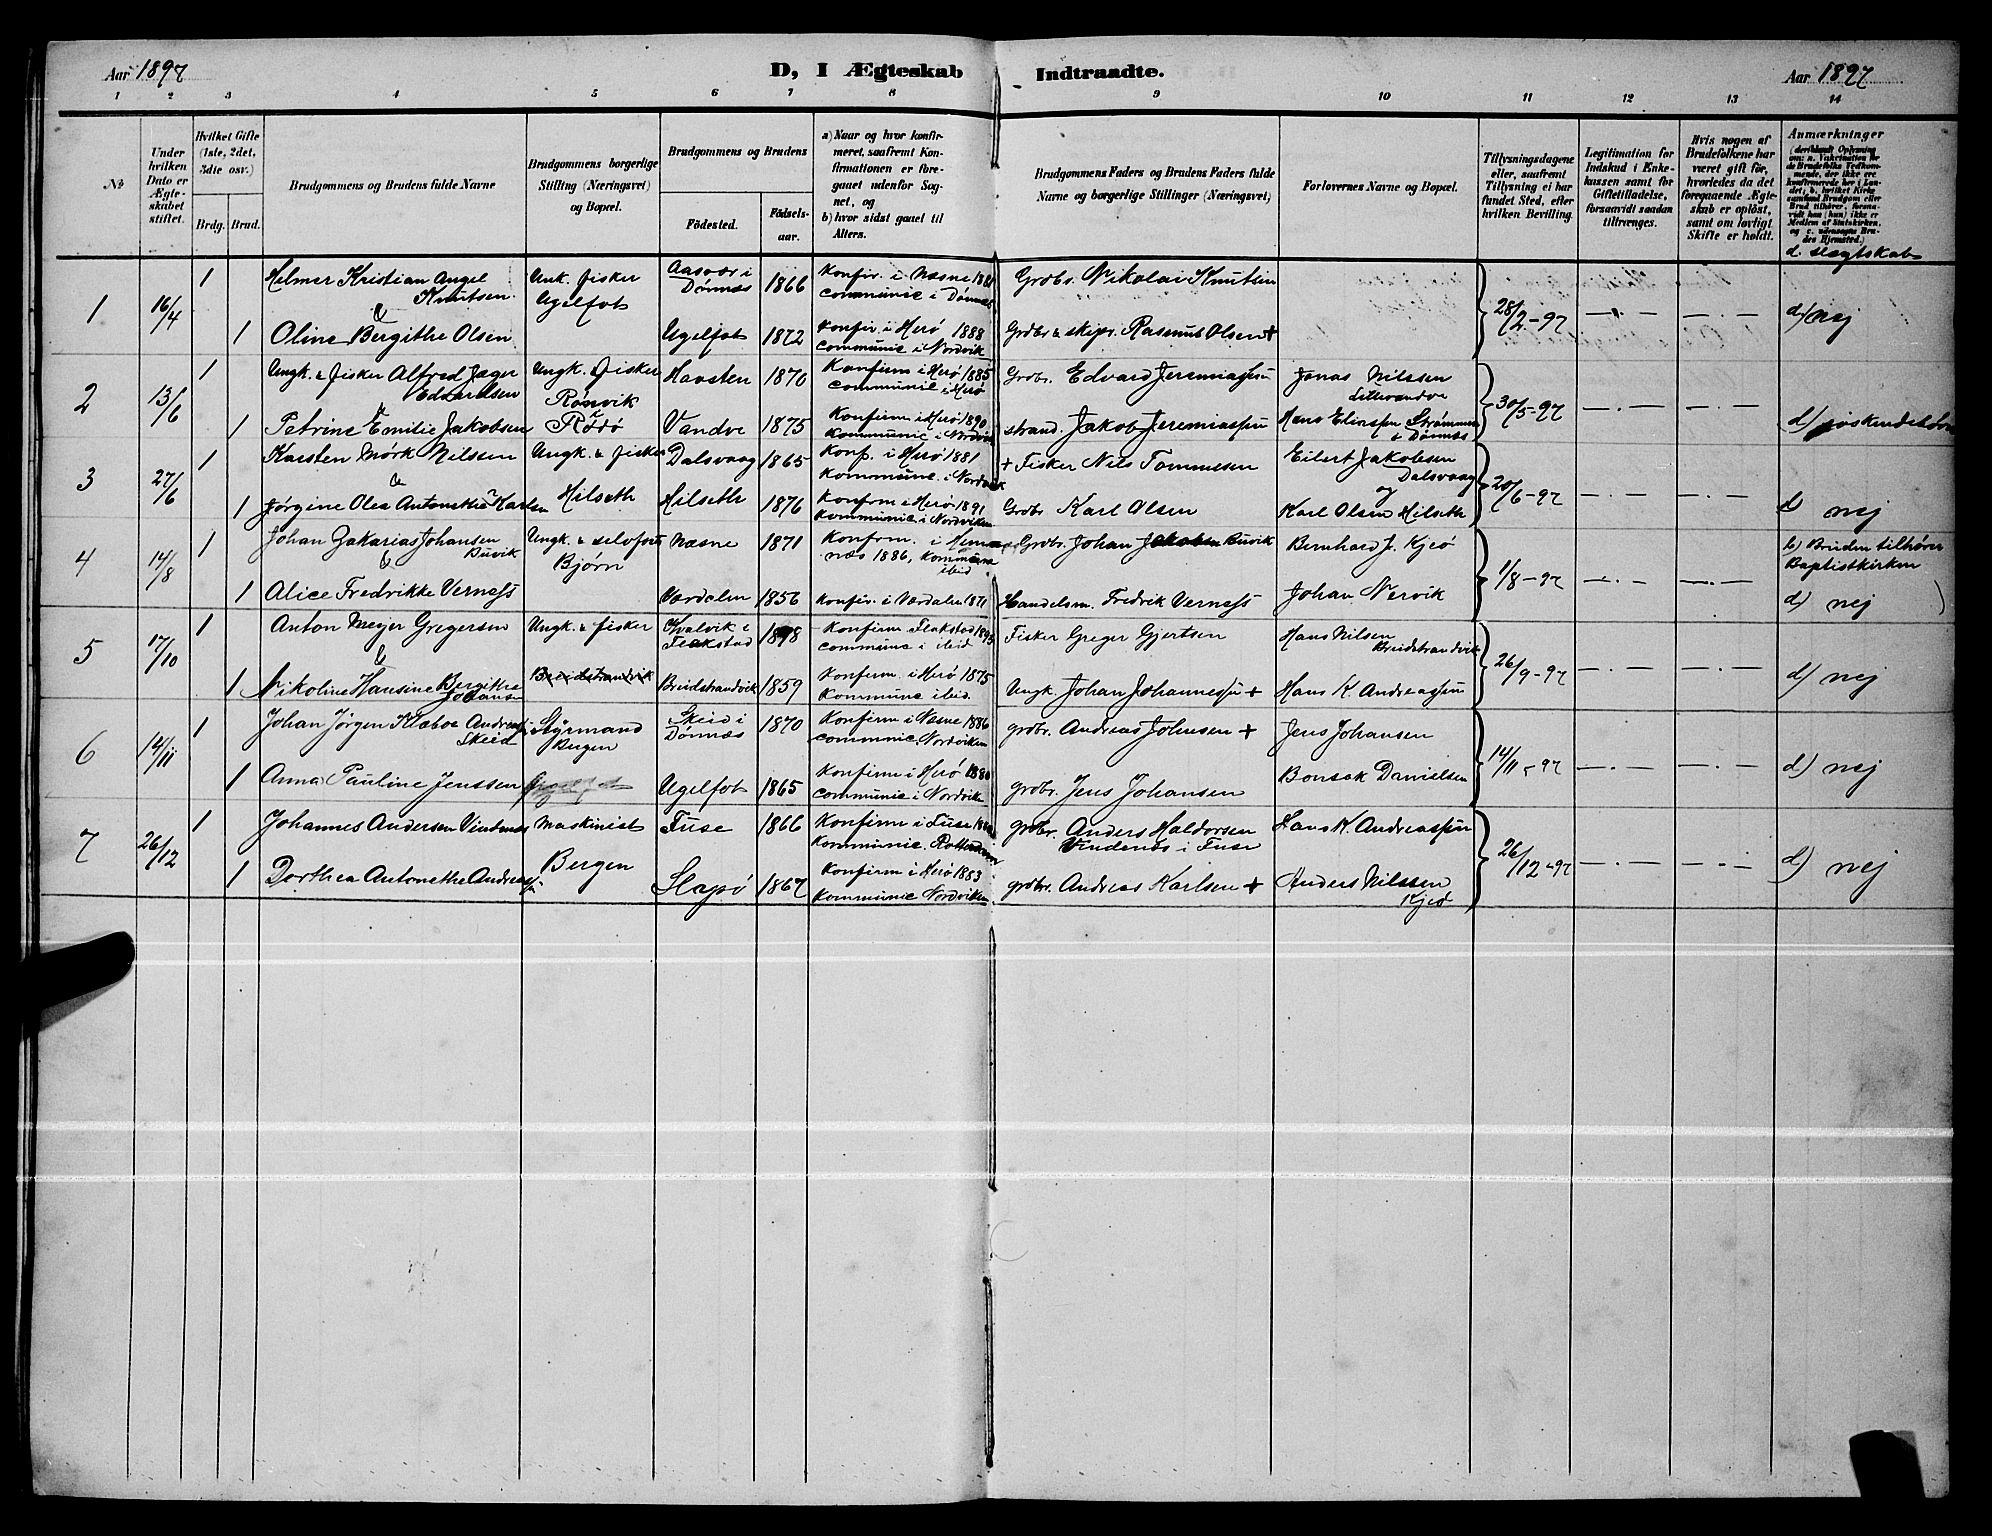 Aar 1897
D, I Ægteskab Indtraadte.
Aar 1897
1 2 3 4 5 6 7 8 9 10 11 12 13 14
№
Under hvilken Dato er Ægteskabet stiftet.
Hvilket Gifte (1ste, 2det, 3dte osv.)
Brdg. Brud.
Brudgommens og Brudens fulde Navne
Brudgommens borgerlige Stilling (Næringsvei) og Bopæl.
Brudgommens og Brudens
Fødested.
Fødselsaar.
a) Naar og hvor konfirmeret, saafremt Konfirmationen er foregaaet udenfor Sognet, og
b) hvor sidst gaaet til Alters.
Brudgommens Faders og Brudens Faders fulde Navne og borgerlige Stillinger (Næringsvei)
Forlovernes Navne og Bopæl.
Tillysningsdagene eller, saafremt Tillysning ei har fundet Sted, efter hvilken Bevilling.
Legitimation for Indskud i Enkekassen samt for Giftetilladelse, forsaavidt saadan tiltrænges.
Hvis nogen af Brudefolkene har været gift før, hvorledes da det foregaaende Ægteskab er opløst, samt om lovligt Skifte er holdt.
Anmærkninger
(deriblandt Oplysning om: a. Vakcination for de Brudefolks Vedkommende, der ikke ere konfirmerede her i Landet; b. hvilket Kirkesamfund Brudgom eller Brud tilhører, forsaavidt han (hun) ikke er Medlem af Statskirken, og c. udensogns Brudes Hjemsted.)
d. Slægtskab
1 16/4 1 Helmer Kristian Angel Knutsen Unk. fisker Ugelfot Aasvær i Dønnæs 1866 Konfir. i Næsne 1881 communic i Dønnæs Grdbr. Nikolai Knutsen 28/2-97 d) nej
&
1 Oline Bergithe Olsen Ugelfot 1872 Konfir. i Herø 1888 communic i Nordvik Grdbr & skipr. Rasmus Olsen +
2 13/6 1 Ungk. & fisker Alfred Jæger Edvardsen Ungk. & fisker Rønvik Rødø Havsten 1870 Konfirm i Herø 1885 communic i Herø Grdbr. Edvard Jeremiassen Jonas Nilssen Littevandve 30/5-97
&
1 Petrine Emilie Jakobsen Vandve 1875 Konfirm i Herø 1890 Kommunic i Nordvik strand. Jakob Jeremiassen Hans Eliassen Strømmen & Dønnæs d) søskendebørn
3 27/6 1 Karsten Mørk Nilssen Ungk. & fisker Hilseth Dalsvaag 1865 Konf. i Herø 1881 Kommune. i Nordvik + Fisker Nils Tommesen Eilert Jakobsen Dalsvaag og 20/6-97
&
1 Jørgine Olea Antonethe Karlsen Hilseth 1876 Konfrm i Herø 1891 Kommunic i Nordviken Grdbr Karl Olsen Karl Olsen Hilseth d) nej
4 14/8 1 Johan Zakarias Johansen Buvik Ungk. & selvfors Bjørn Næsne 1871 Konfrm. i Hemnæs 1886, Kommune ibid Grdbr. Johan Buvik Bernhard J. Kjeø 1/8-97 b) Bruden tilhører Baptistkirken
&
1 Alice Fredrikke Verness Værdalen 1856 Konfir. i Værdalen 1871 Handelsm. Fredrik Verness Johan Nervik d) nej
5 17/10 1 Anton Meyer Gregersen Ungk. & fisker Breidstrandvik Kvalvik i Flakstad 1898 Konfirm Flakstad 1895 communic i ibid Fisker Greger Gjertsen Hans Nilsen Breidstrandvik 26/9-97
&
1 Nikoline Hansine Bergithe Johans Breidstrandvik 1859 Konfirm. i Herø 1875 Kommunic ibid. Ungk. Johan Johannessen + Hans K. Andreassen d) nej
6 14/11 1 Johan Jørgen Klæboe Andreas Skeid Styrmand Bergen Skeid i Dønnæs 1870 Konfirm i Næsne 1886 communic. Nordviken grdbr. Andreas Johnsen + Jens Johansen 14/11-97
1 Anna Pauline Jenssen Ugelfot 1865 Konfirm i Herø 1880 communic i Nordvik grdbr. Jens Johansen Bonsak Danielsen d) nej
7 26/12 1 Johannes Andersen Vindenæs Maskinist Bergen Fuse 1866 Konfirm i Fuse Kommunic. Rotterdam grdbr. Anders Haldorsen Vindenæs i Fuse Hans K. Andreassen 26/12-97
1 Dorthea Antonethe Andreas Slapø 1867 Konfirm i Herø 1883 Kommunic Nordviken grdbr. Andreas Karlsen + Anders Nilssen Kjeø d) nej